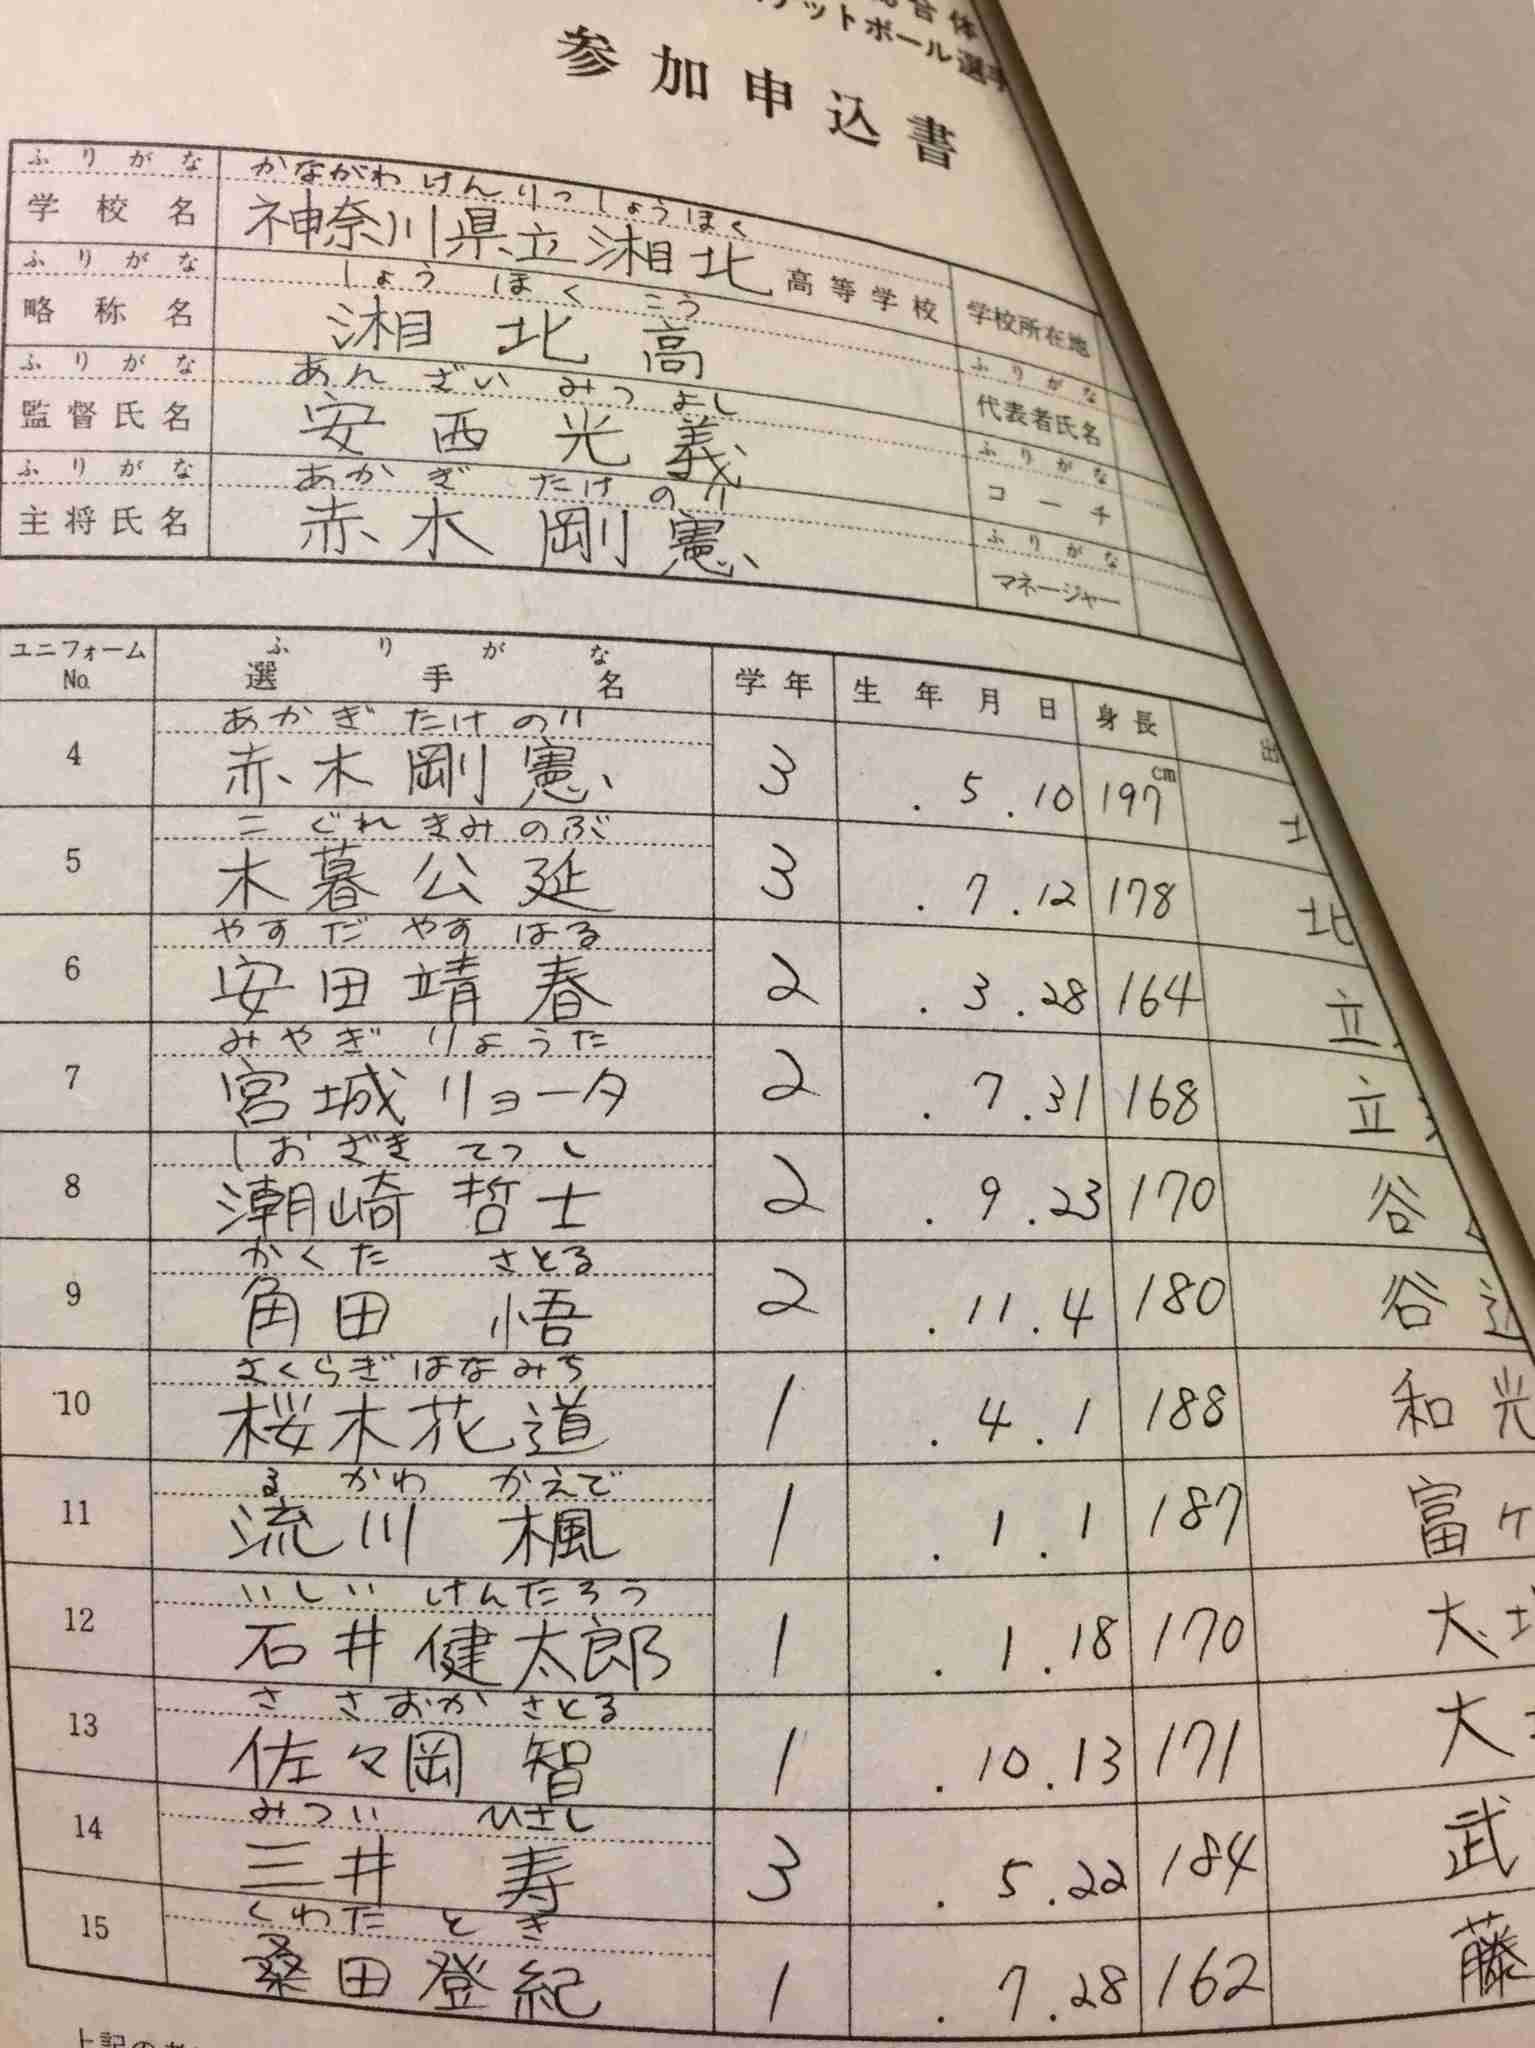 総合体
ケットボール選手
参加申込書
ふりがな かながわけんりつしょうほく
学校名 神奈川県立湘北高等学校 学校所在地
ふりがな しょうほくこう ふりがな
略称名 湘北高 代表者氏名
ふりがな あんざいみつよし ふりがな
監督氏名 安西光義 コーチ
ふりがな あかぎたけのり ふりがな
主将氏名 赤木剛憲 マネージャー
ユニフォームNo. ふりがな 選手名 学年 生年月日 身長 出
あかぎたけのり
4 赤木剛憲 3 .5.10 197cm
こぐれきみのぶ
5 木暮公延 3 .7.12 178 北
やすだやすはる
6 安田靖春 2 .3.28 164 立
みやぎりょうた
7 宮城リョータ 2 .7.31 168 立
しおざきてつし
8 潮崎哲士 2 .9.23 170 谷
かくた さとる
9 角田 悟 2 .11.4 180 谷
さくらぎはなみち
10 桜木花道 1 .4.1 188 和光
るかわ かえで
11 流川 楓 1 .1.1 187 富ヶ
いしい けんたろう
12 石井健太郎 1 .1.18 170 大
ささおか さとる
13 佐々岡 智 1 .10.13 171 大
みつい ひさし
14 三井 寿 3 .5.22 184 武
くわた とき
15 桑田登紀 1 .7.28 162 藤